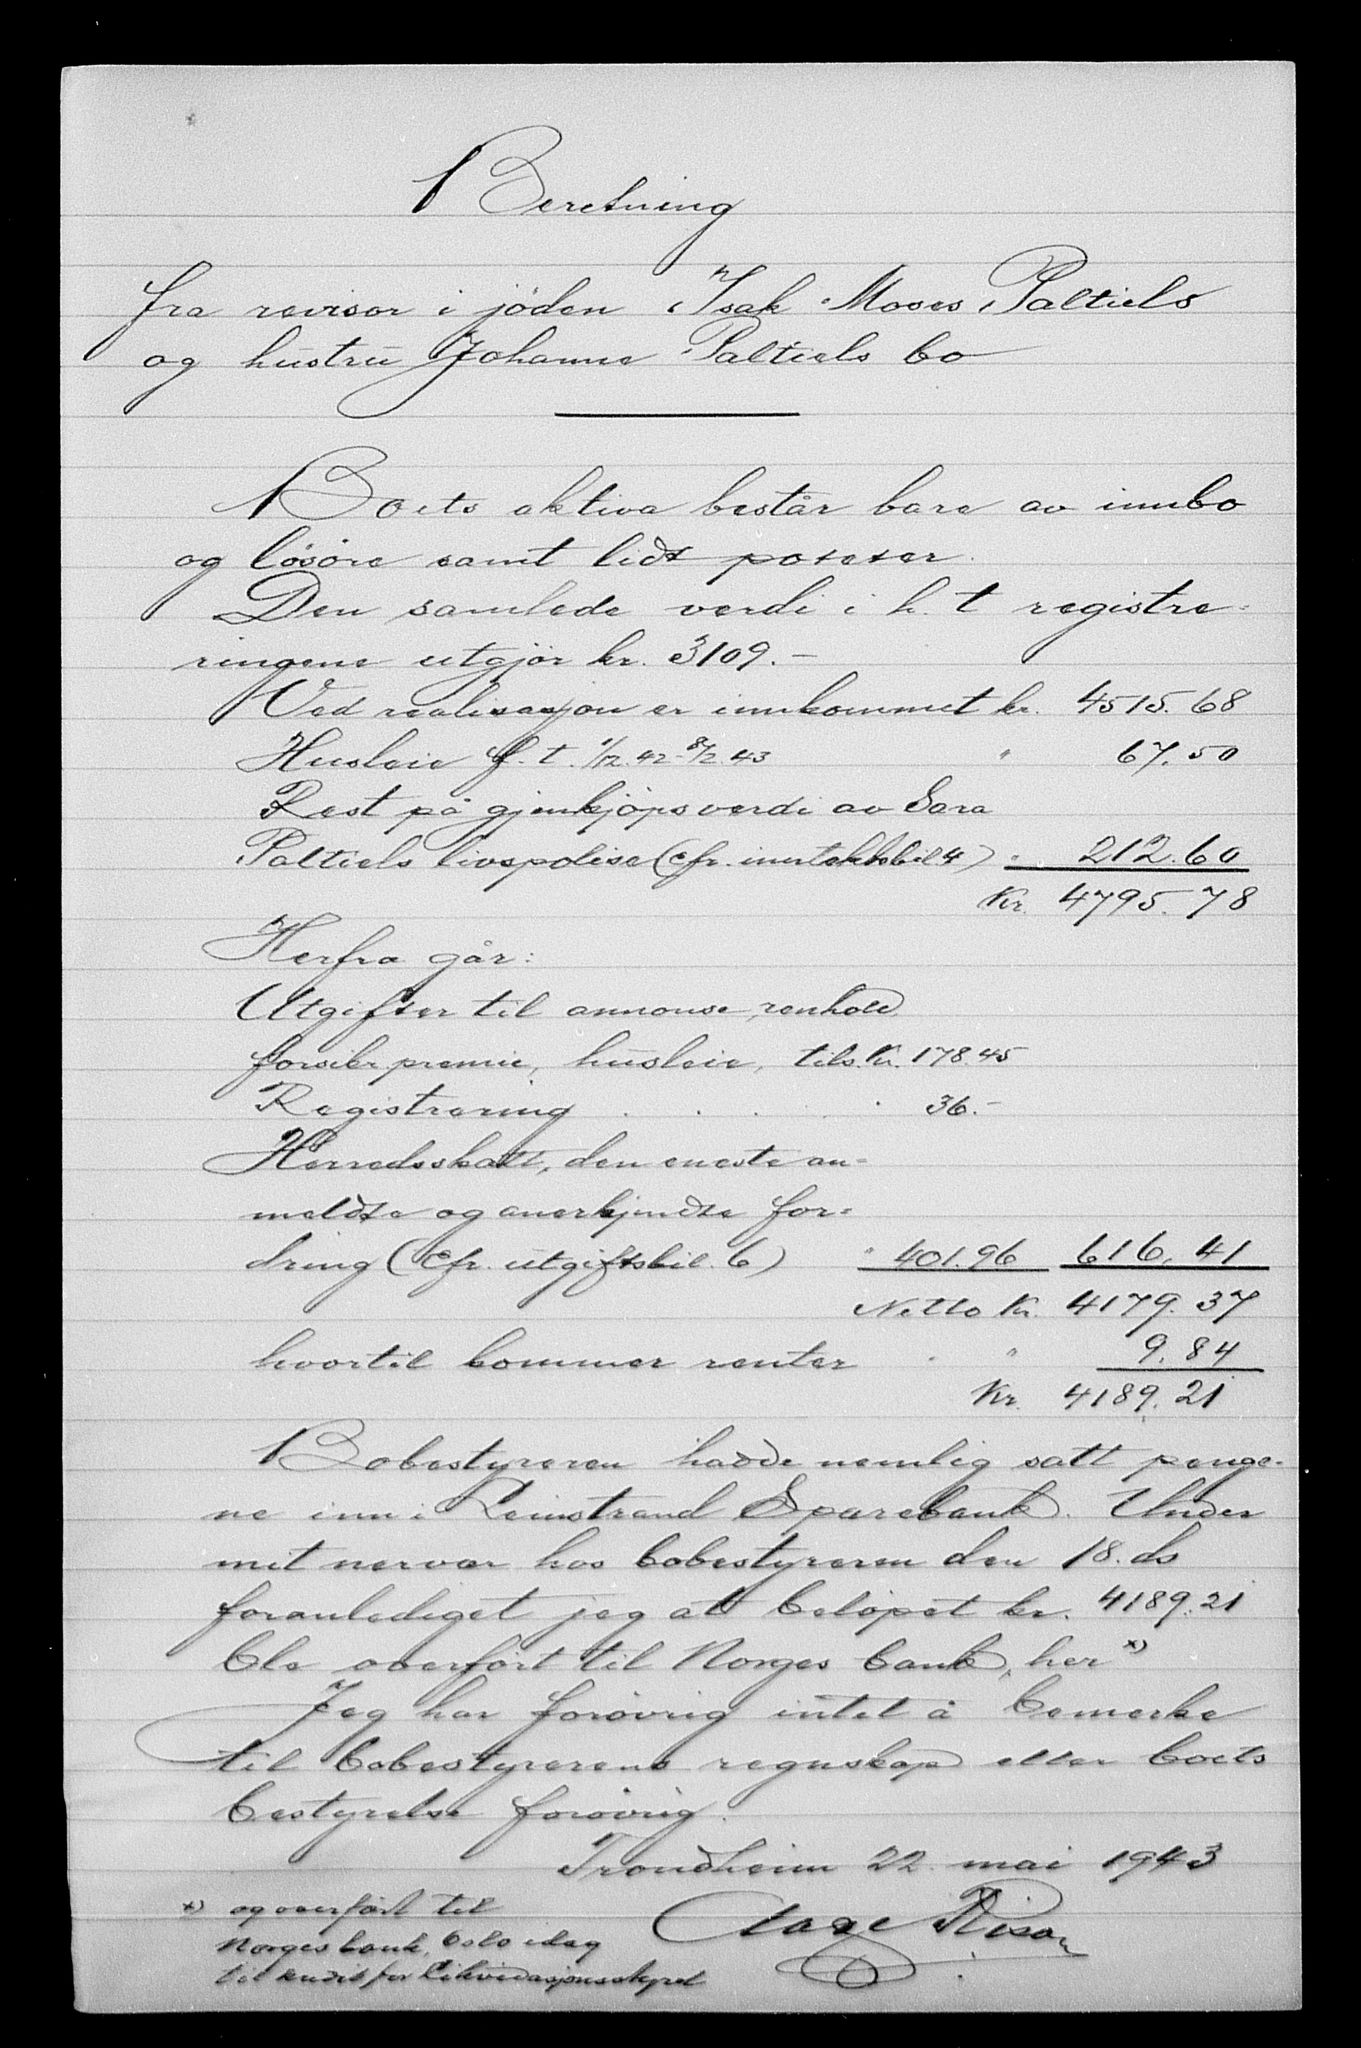 Beretning
fra revisor i jöden Isak Moses Paltiels
og hustru Johanne Paltiels bo
Boets aktiva består bare av innbo
og lösöre samt lidt poteter.
Den samlede verdi i h. t registre-
ringene utgjör kr. 3109.-
Ved realisasjon er innkommet kr. 4515.68
Husleie f. t. 1/12.42-8/2.43 " 67.50
Rest på gjenkjöpsverdi av Sara
Paltiels livspolise (cfr. inntektsbil 4) " 212.60
Kr. 4795.78
Herfra går:
Utgifter til annonse, renhold
forsikr premie, husleie, tils. Kr. 178.45
Registrering . . . . . 36.-
Herredsskatt, den eneste an-
meldte og anerkjendte for-
dring (Cfr. utgiftsbil. 6) " 401.96 616,41
Netto Kr. 4179.37
hvortil kommer renter . " 9.84
Kr. 4189.21
Bobestyreren hadde nemlig satt penge-
ne inn i Leinstrand Sparebank. Under
mit nervær hos bobestyreren den 18. ds
foranlediget jeg at belöpet kr. 4189.21
ble overfört til Norges bank, her x)
Jeg har forövrig intet å bemerke
til bobestyrerens regnskap eller boets
bestyrelse forövrig.
Trondheim 22. mai 1943
Aage
x) og overfört til
Norges bank, Oslo idag
til kredit for Likvidasjonsstyret